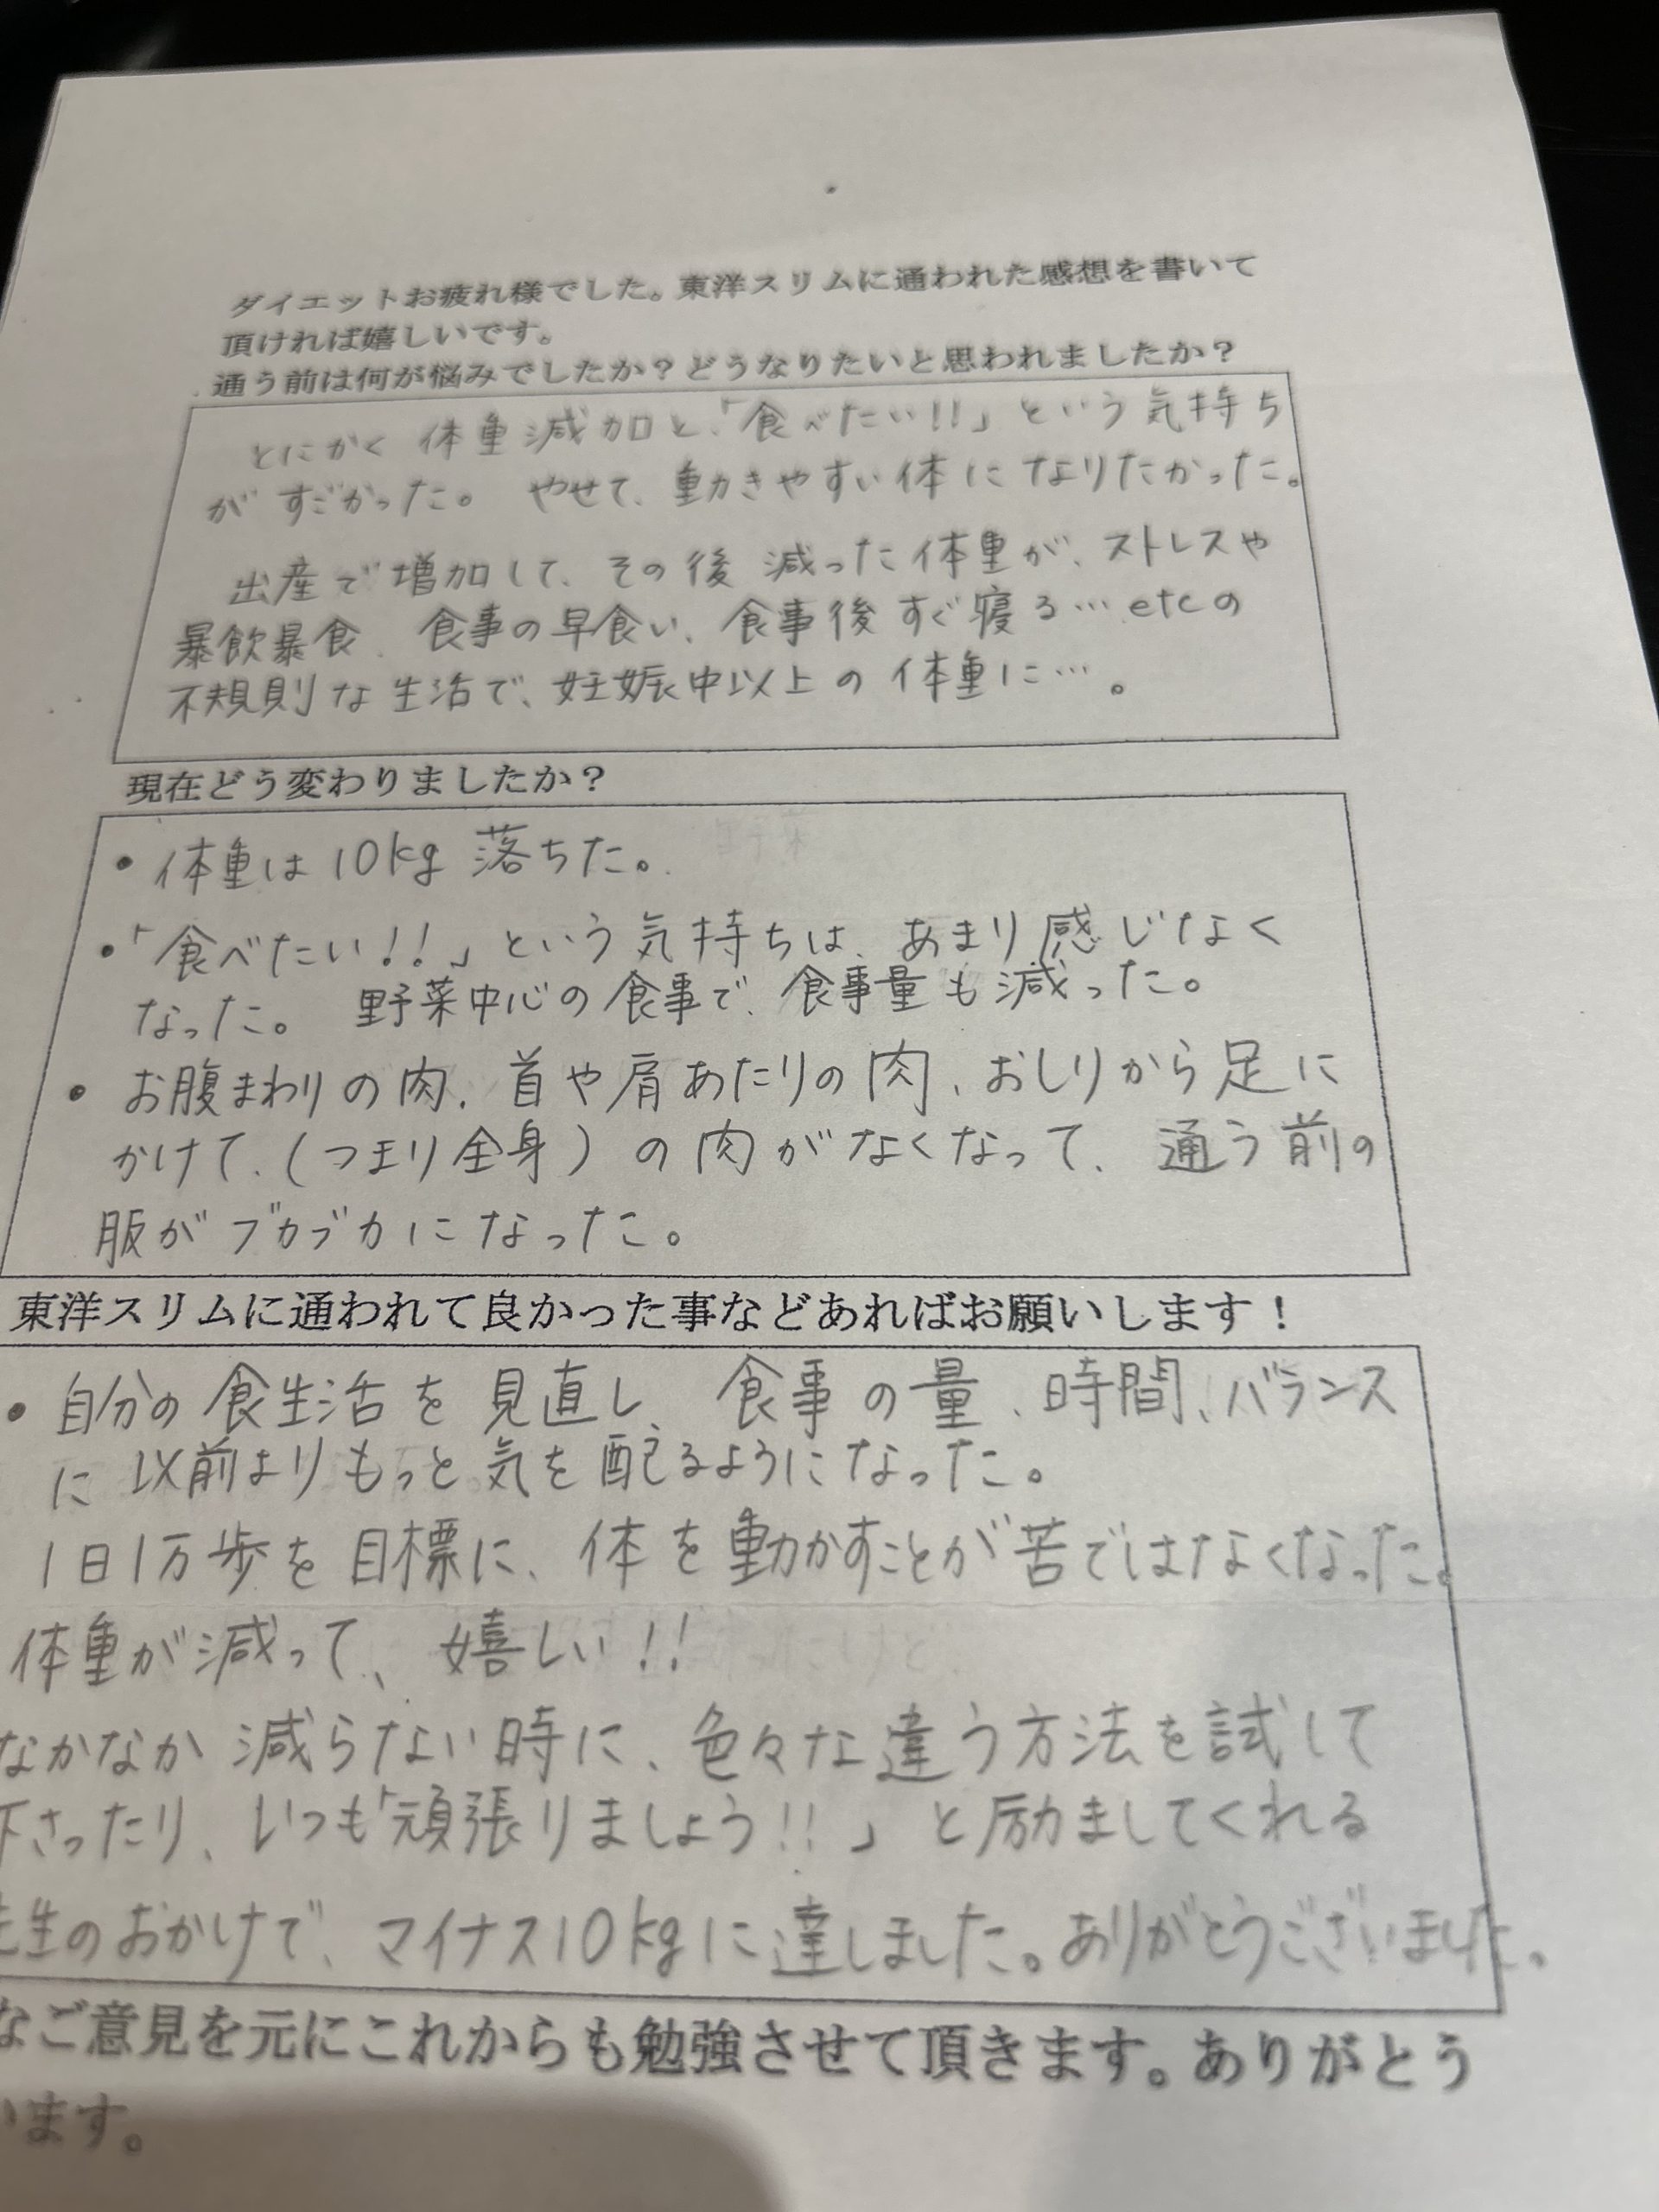 ダイエットお疲れ様でした。東洋スリムに通われた感想を書いて
頂ければ嬉しいです。
通う前は何が悩みでしたか？どうなりたいと思われましたか？
とにかく体重減加と、「食べたい!!」という気持ち
がすごかった。やせて、動きやすい体になりたかった。
出産で増加して、その後減った体重が、ストレスや
暴飲暴食、食事の早食い、食事後すぐ寝る…etcの
不規則な生活で、妊娠中以上の体重に…。
現在どう変わりましたか？
・体重は10kg落ちた。
・「食べたい!!」という気持ちは、あまり感じなく
なった。野菜中心の食事で、食事量も減った。
・お腹まわりの肉、首や肩あたりの肉、おしりから足に
かけて、(つまり全身)の肉がなくなって、通う前の
服がブカブカになった。
東洋スリムに通われて良かった事などあればお願いします！
・自分の食生活を見直し、食事の量、時間、バランス
に以前よりもっと気を配るようになった。
1日1万歩を目標に、体を動かすことが苦ではなくなった。
体重が減って、嬉しい!!
なかなか減らない時に、色々な違う方法を試して
下さったり、いつも「頑張りましょう!!」と励ましてくれる
先生のおかけで、マイナス10kgに達しました。ありがとうございました。
なご意見を元にこれからも勉強させて頂きます。ありがとう
います。